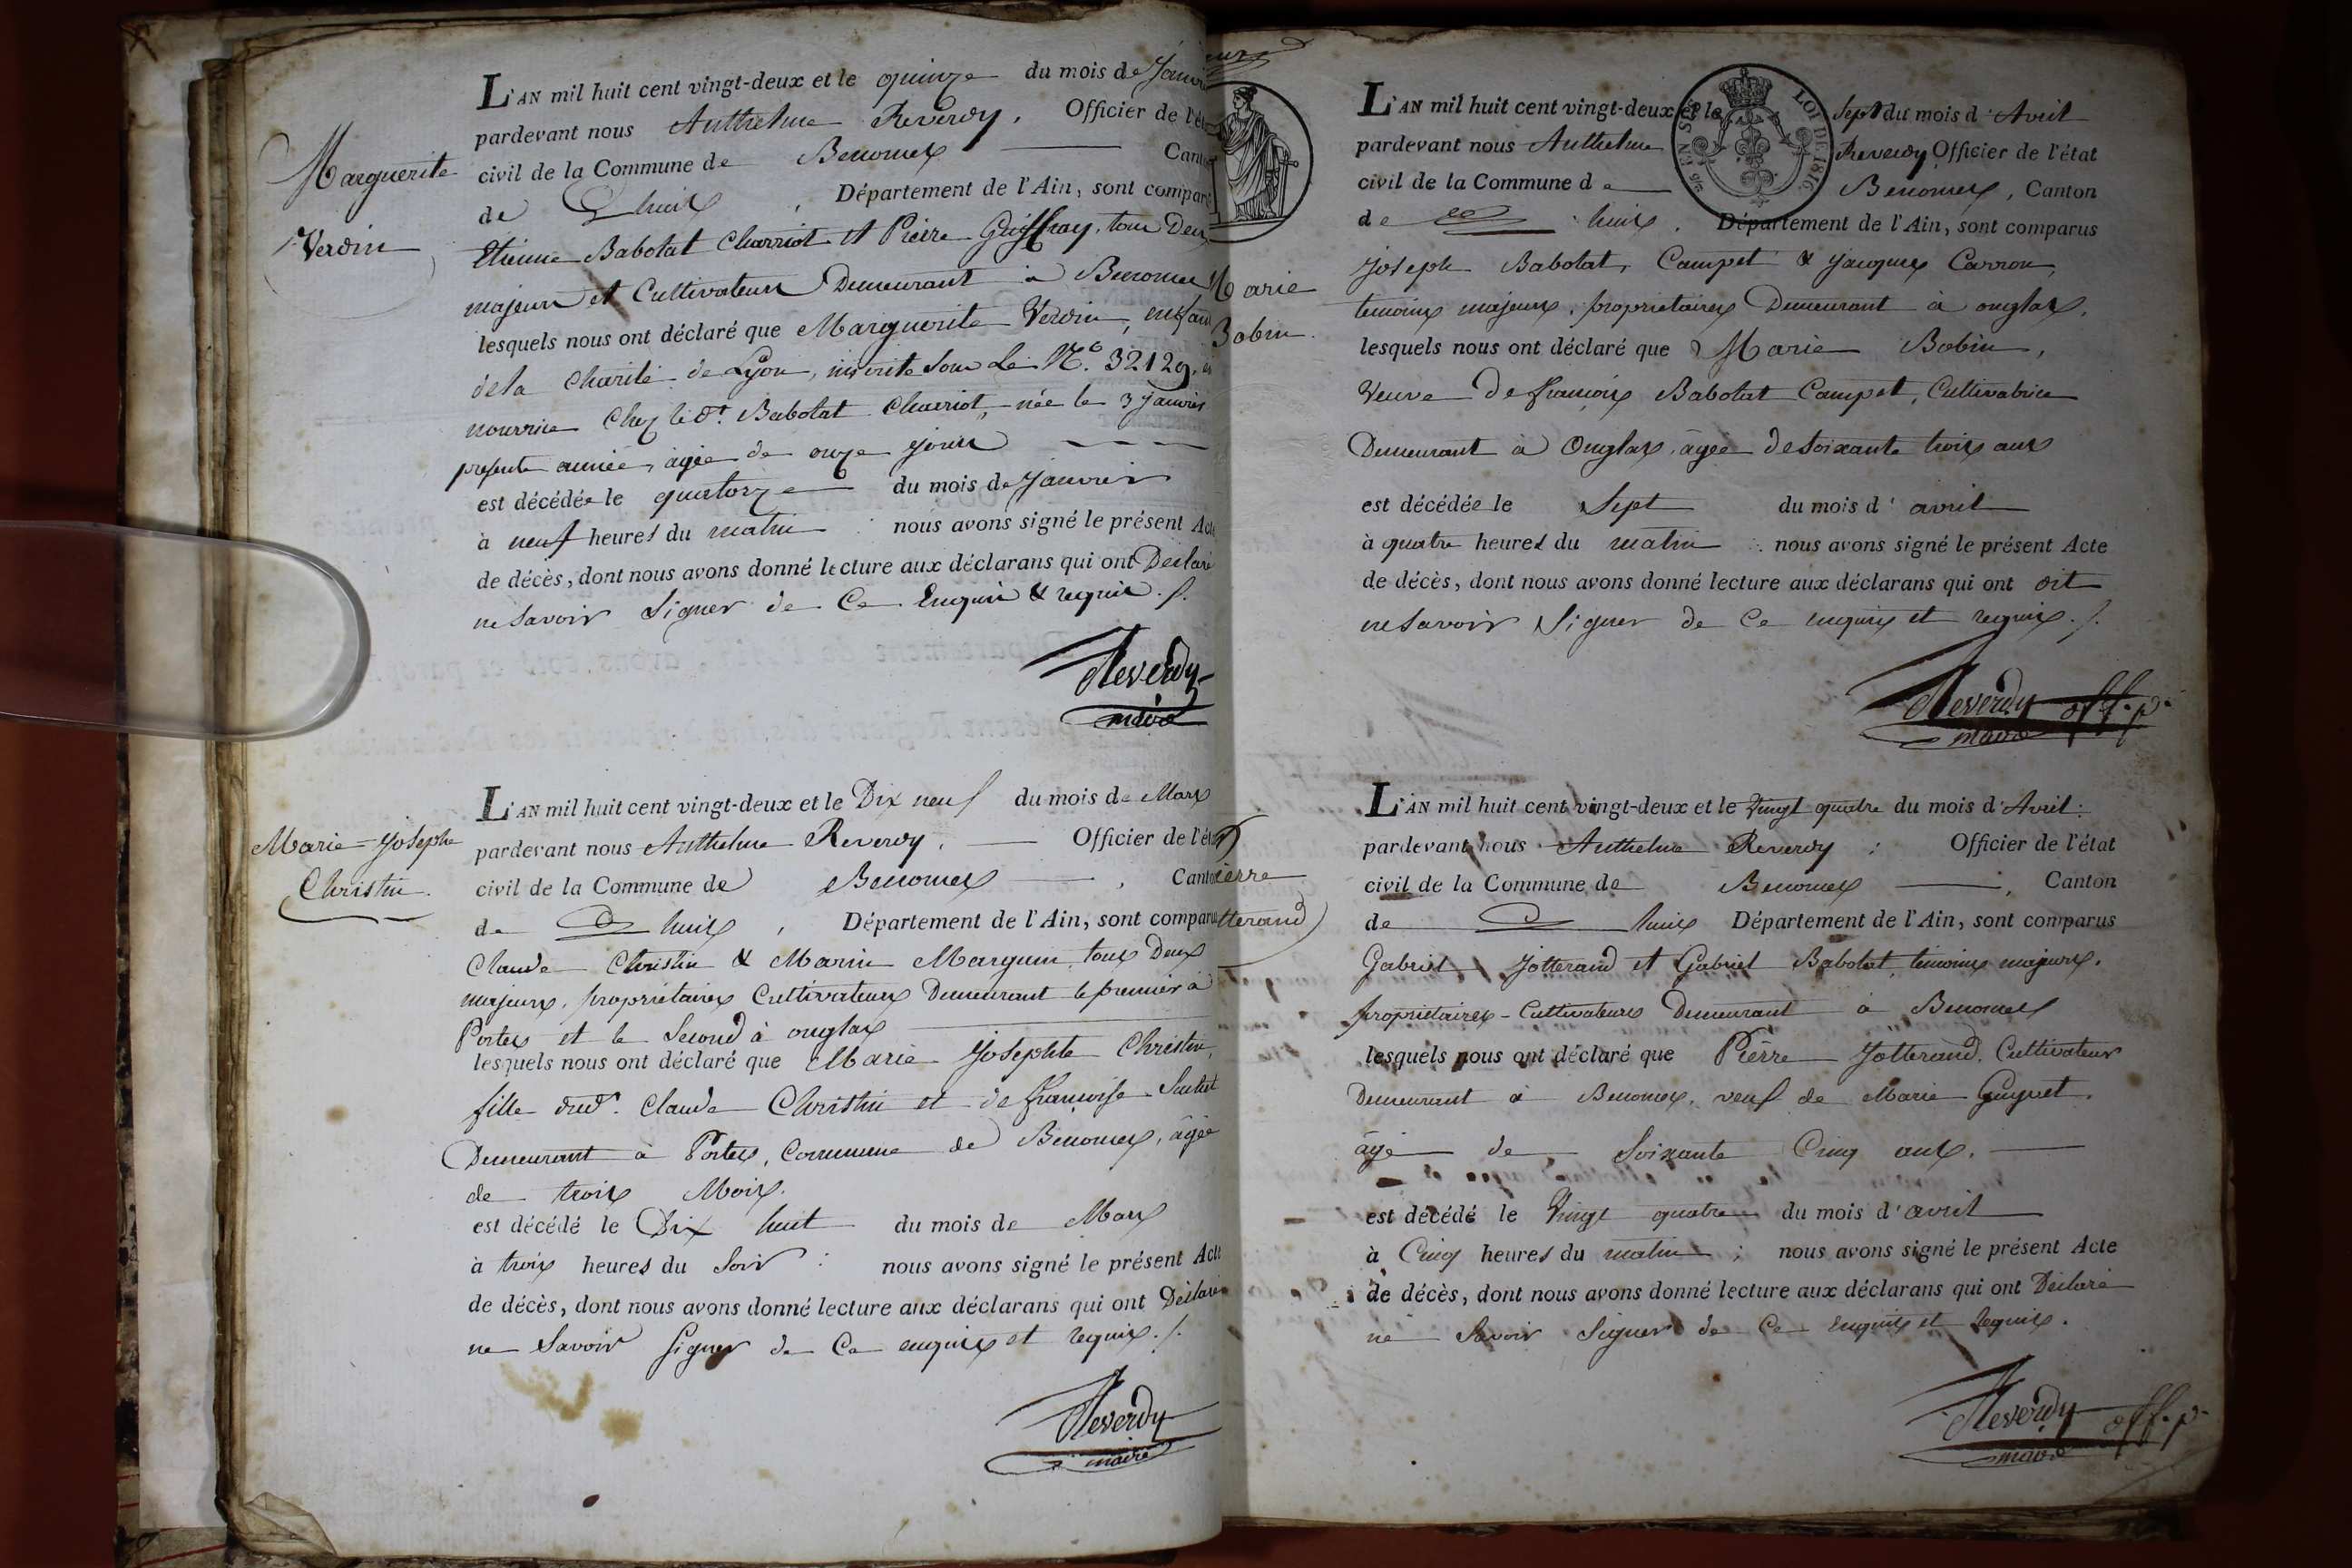 Marguerite
Verdin
L'AN mil huit cent vingt-deux et le quinze du mois de Janvi
pardevant nous Anthelme Reverdy, Officier de l'ét
civil de la Commune de Benonces Cant
de Lhuis, Département de l'Ain, sont compar
Etienne Babolat Charriot et Pierre Guiffray, tous Deux
majeurs et Cultivateurs Demeurant à Benonces
lesquels nous ont déclaré que Marguerite Verdin, enfan
de la Charité de Lyon, inscrite sous le N.o 32129, en
nourrice Chez le dt. Babolat Charriot, née le 3 janvier
presente année, agée de onze jours
est décédée le quatorze du mois de Janvier
à neuf heures du matin : nous avons signé le présent Acte
de décès, dont nous avons donné lecture aux déclarans qui ont Déclaré
ne Savoir Signer de Ce Enquis & requis ./.
Reverdy
maire
Marie-Josephe
Christin.
L'AN mil huit cent vingt-deux et le Dix neuf du mois de Mars
pardevant nous Anthelme Reverdy, Officier de l'éta
civil de la Commune de Benonces, Canto
de Lhuis, Département de l'Ain, sont comparu
Claude Christin & Marin Marguin, tous Deux
majeurs, propriétaires Cultivateurs Demeurant le premier à
Portes et le Second à onglas
lesquels nous ont déclaré que Marie Josephte Christin,
fille dudt. Claude Christin et de françoise
Demeurant à Portes, Commune de Benonces, âgée
de trois Mois.
est décédé le Dix huit du mois de Mars
à trois heures du Soir : nous avons signé le présent Acte
de décès, dont nous avons donné lecture aux déclarans qui ont Déclaré
ne Savoir Signer de Ce enquis et requis ./.
Reverdy
maire
Marie
Bobin.
L'AN mil huit cent vingt-deux et le Sept du mois d'Avril
pardevant nous Anthelme Reverdy Officier de l'état
civil de la Commune de Benonces, Canton
de Lhuis. Département de l'Ain, sont comparus
LOI DE 1816.
EN SUS
Joseph Babolat Campet & Jacques Carron,
temoins majeurs, propriétaires Demeurant à onglas,
lesquels nous ont déclaré que Marie Bobin,
Veuve De françois Babolat Campet, Cultivatrice
Demeurant à Onglas, âgée de Soixante trois ans
est décédée le Sept du mois d'avril
à quatre heures du matin : nous avons signé le présent Acte
de décès, dont nous avons donné lecture aux déclarans qui ont dit
ne Savoir Signer de Ce enquis et requis ./.
Reverdy off. p.
maire
Pierre
Jotterand
L'AN mil huit cent vingt-deux et le Vingt quatre du mois d'Avril :
pardevant nous Anthelme Reverdy ; Officier de l'état
civil de la Commune de Benonces, Canton
de Lhuis Département de l'Ain, sont comparus
Gabriel Jotterand et Gabriel Babolat, témoins majeurs,
propriétaires-Cultivateurs Demeurant à Benonces
lesquels nous ont déclaré que Pierre Jotterand, Cultivateur
Demeurant à Benonces, veuf de Marie Guynet,
âgé de Soixante Cinq ans.
est décédé le Vingt quatre du mois d'avril
à Cinq heures du matin ; nous avons signé le présent Acte
de décès, dont nous avons donné lecture aux déclarans qui ont Déclaré
ne Savoir Signer de Ce Enquis et Requis.
Reverdy off. p.
maire